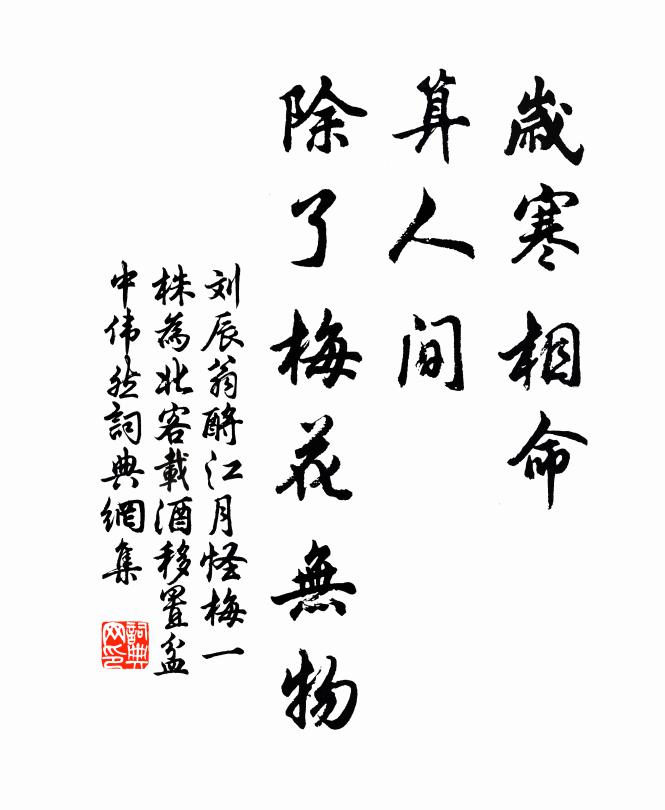 歲寒相命
算人間
除了梅花無物
刘辰翁酹江月怪梅一
株為北客載酒移置盆
中伟然詞典網集
詞典网印